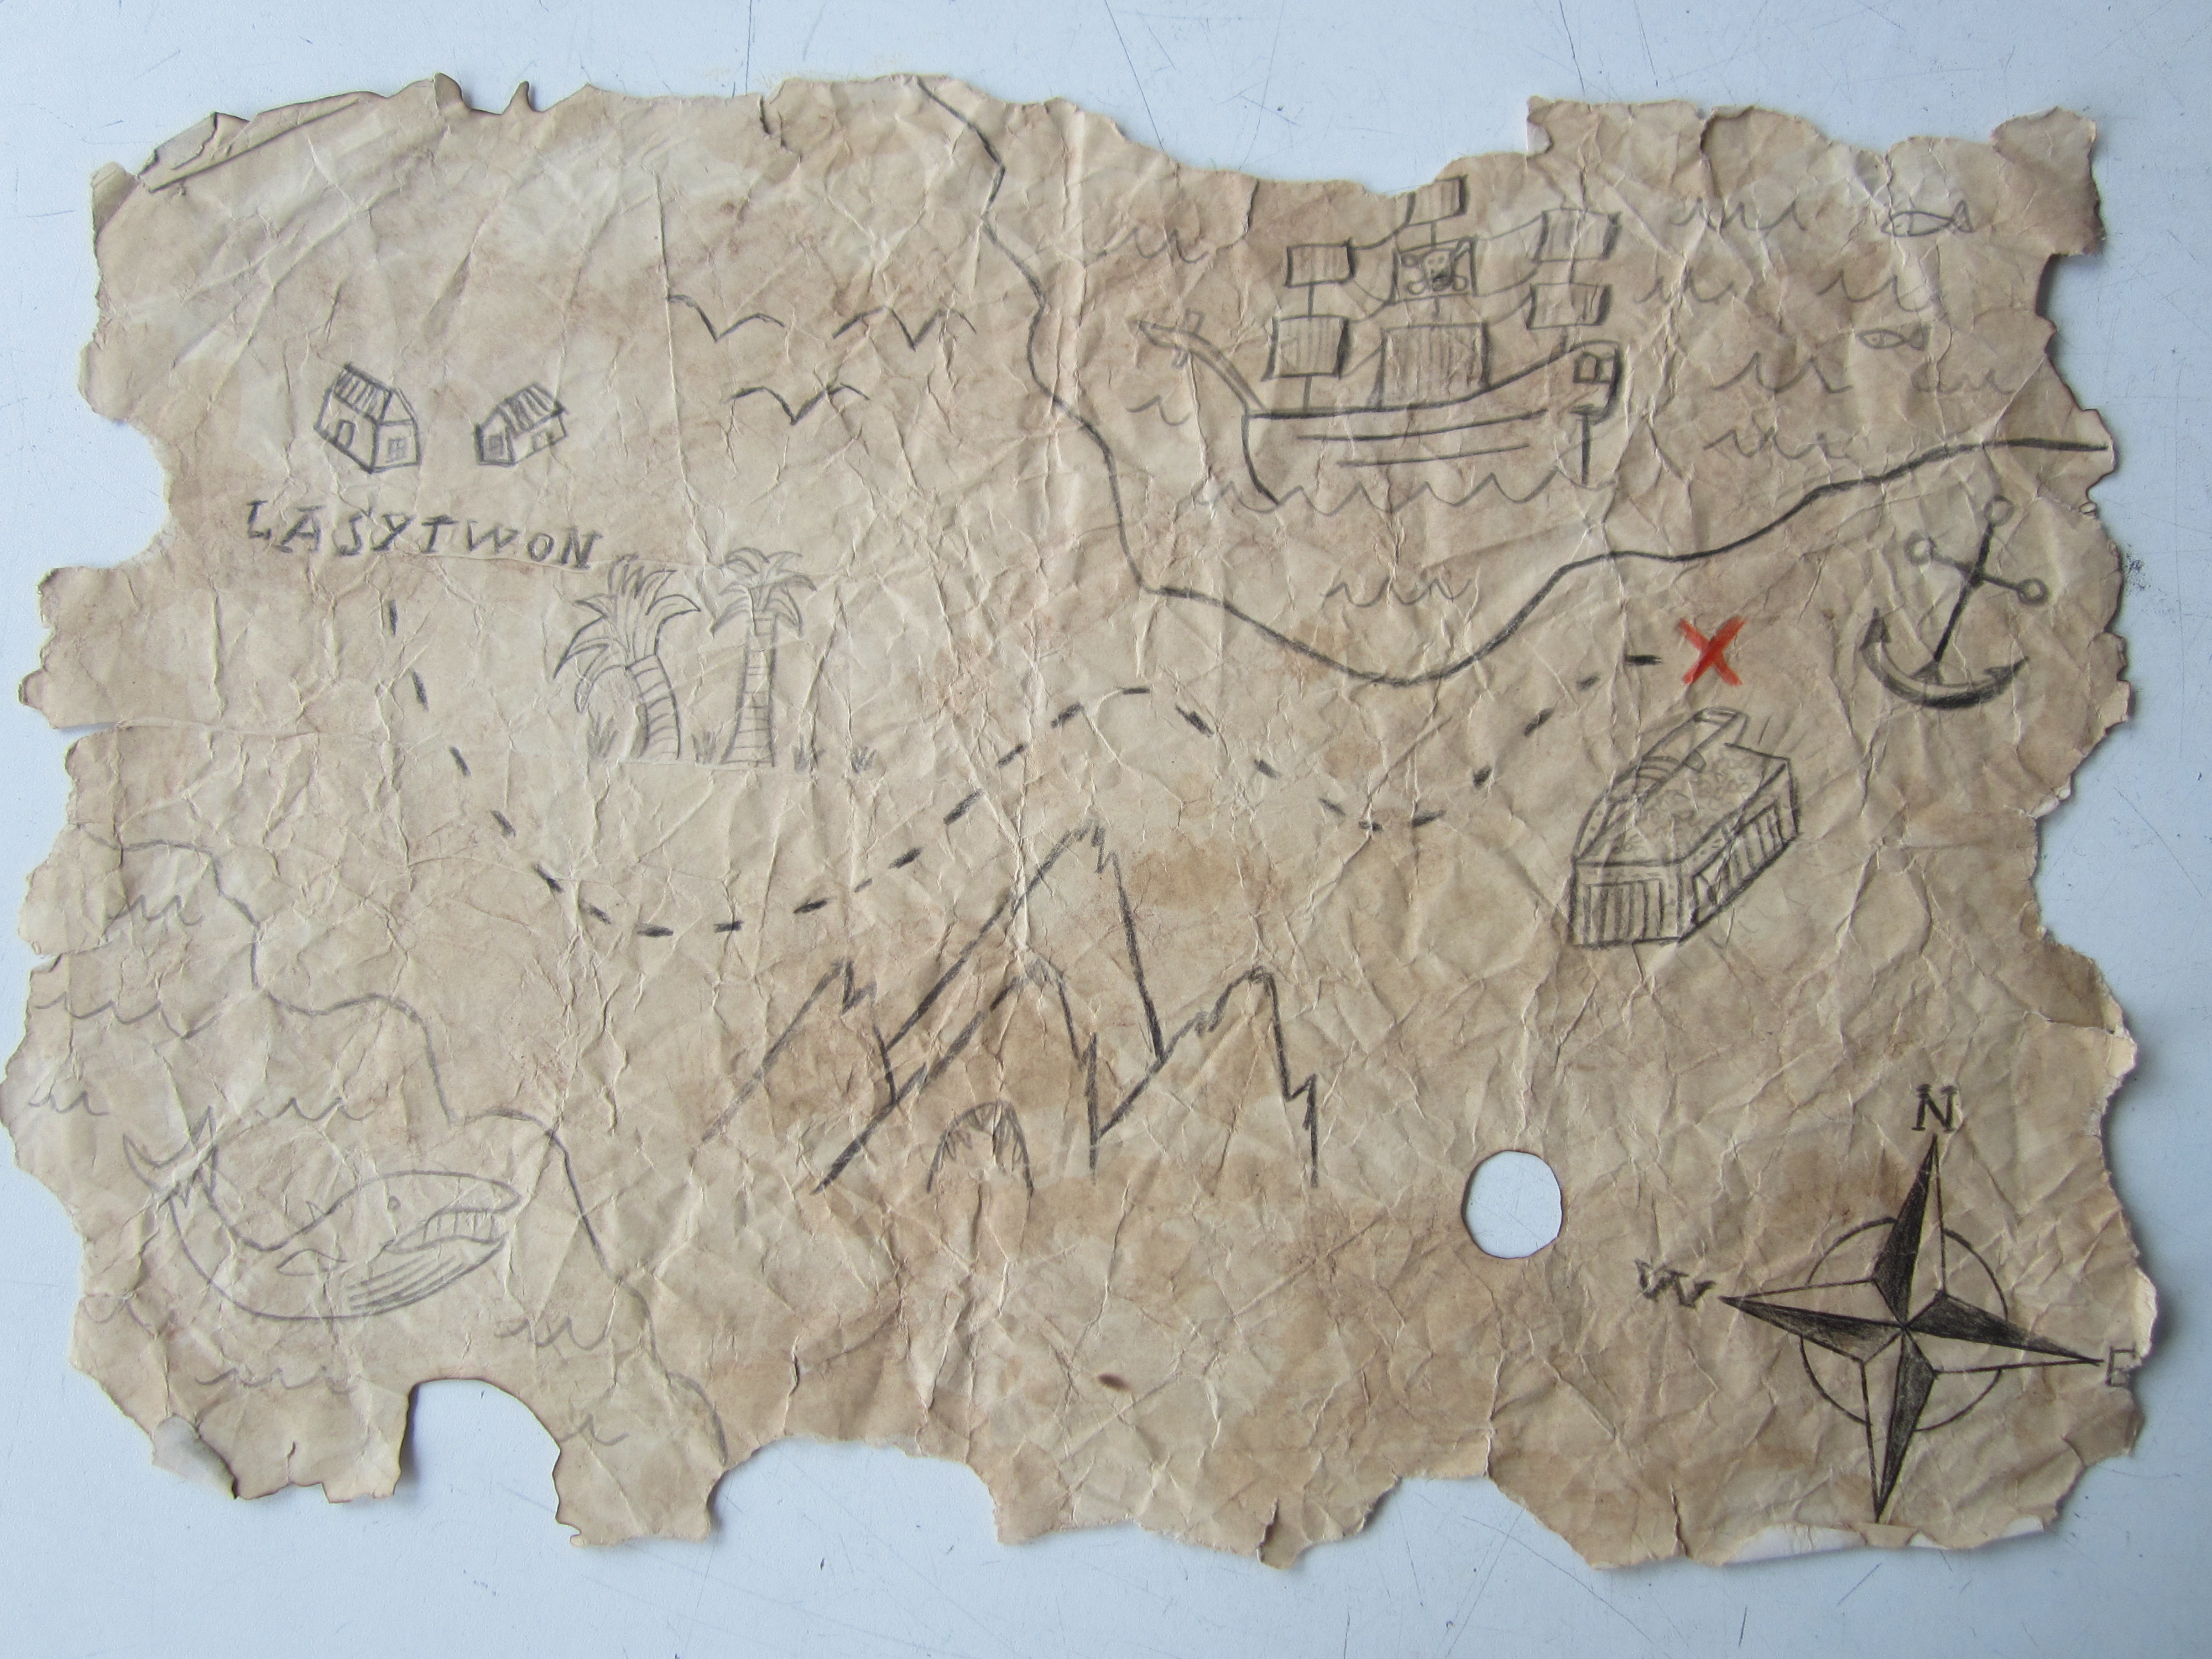 LASYTWON
N
W
E
X